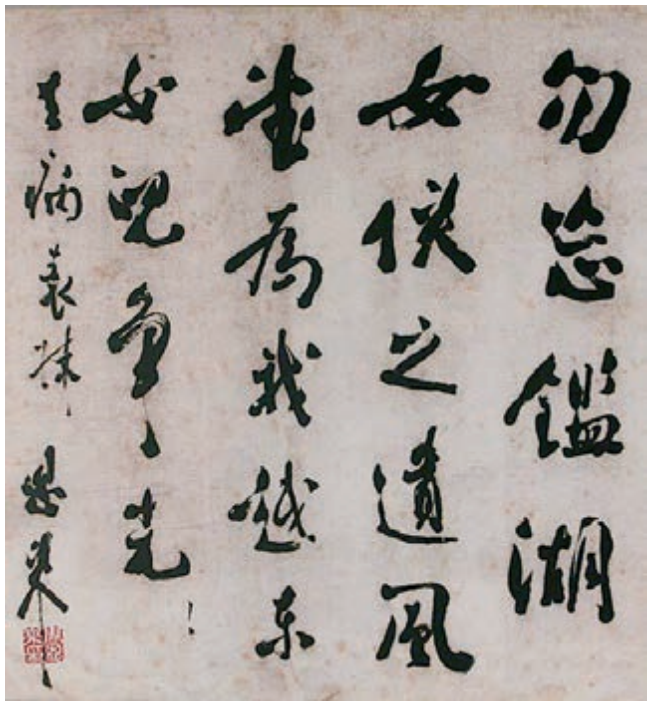 勿忘鑑湖
女俠之遺風
望為我越東
女兒爭光！
去病表妹 恩来